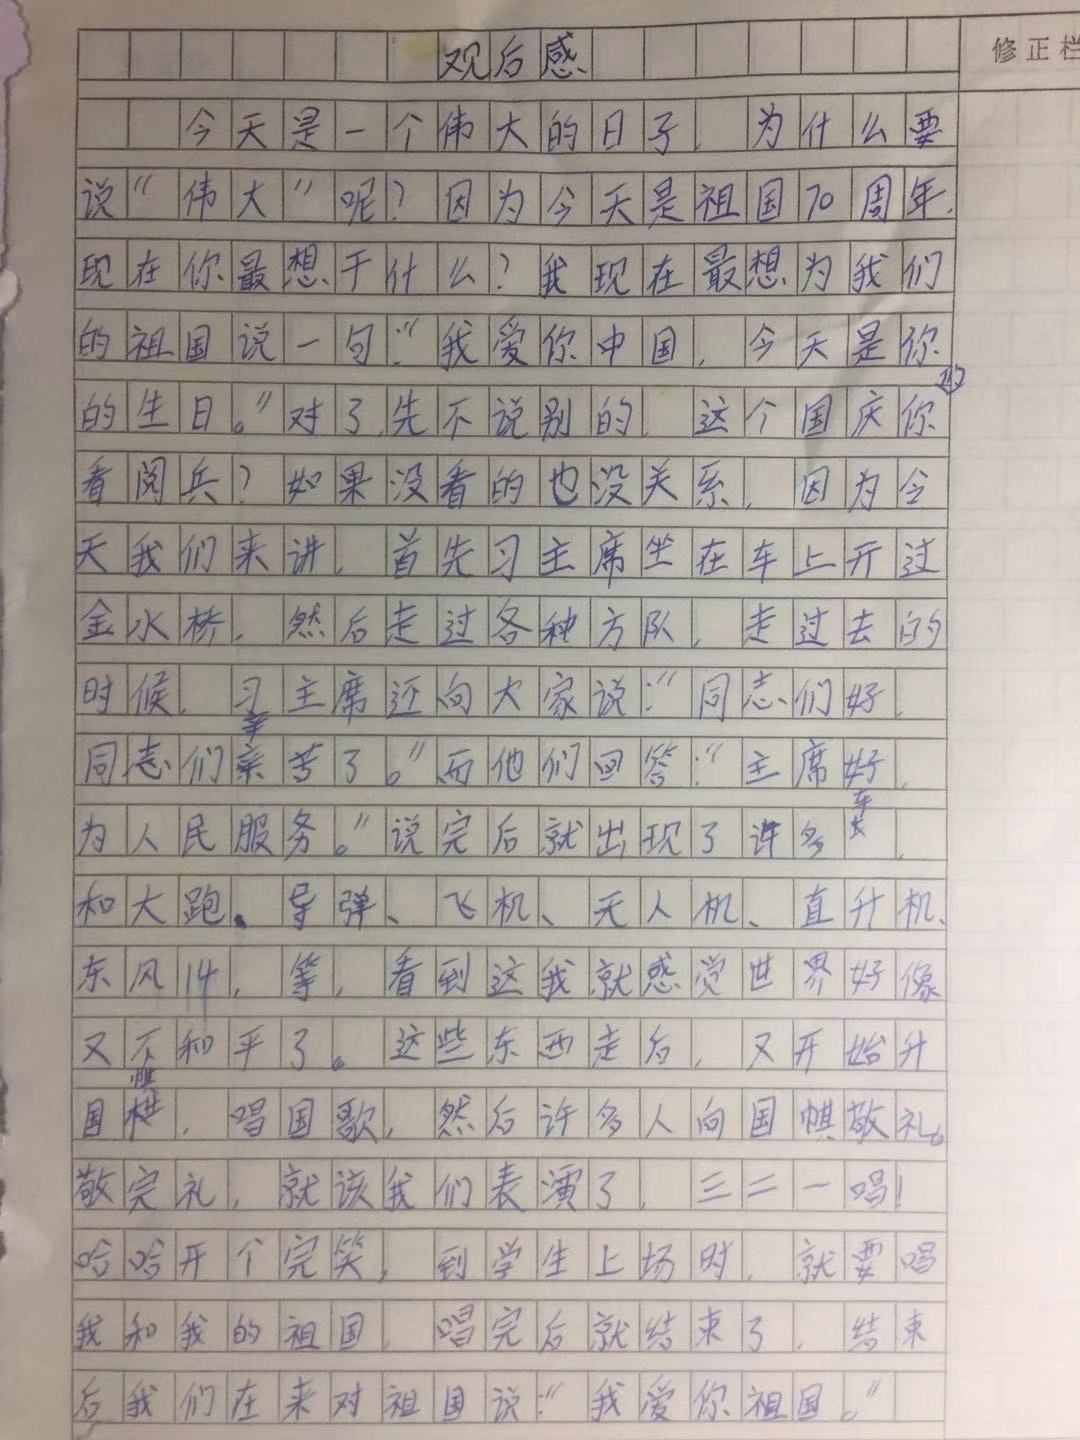 修正栏
观后感
今天是一个伟大的日子，为什么要
说“伟大”呢？因为今天是祖国70周年，
现在你最想干什么？我现在最想为我们
的祖国说一句：“我爱你中国，今天是你
的生日。”对了，先不说别的，这个国庆你
看阅兵？如果没看的也没关系，因为今
天我们来讲，首先习主席坐在车上开过
金水桥，然后走过各种方队，走过去的
时候，习主席还向大家说：“同志们好，
同志们辛苦了。”而他们回答：“主席好，
为人民服务。”说完后就出现了许多车，
和大跑、导弹、飞机、无人机、直升机、
东风14，等，看到这我就感觉世界好像
又不和平了。这些东西走后，又开始升
国棋，唱国歌，然后许多人向国帜敬礼。
敬完礼，就该我们表演了，三二一唱！
哈哈开个完笑，到学生上场时，就要唱
我和我的祖国，唱完后就结束了，结束
后我们在来对祖国说：“我爱你祖国。”